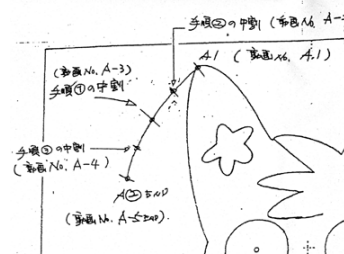 手順②の中割 (動画No. A-
A1 (動画No. A.1)
(動画No. A-3)
手順①の中割
手順③の中割
(動画No. A-4)
A②END
(動画No. A-5END)